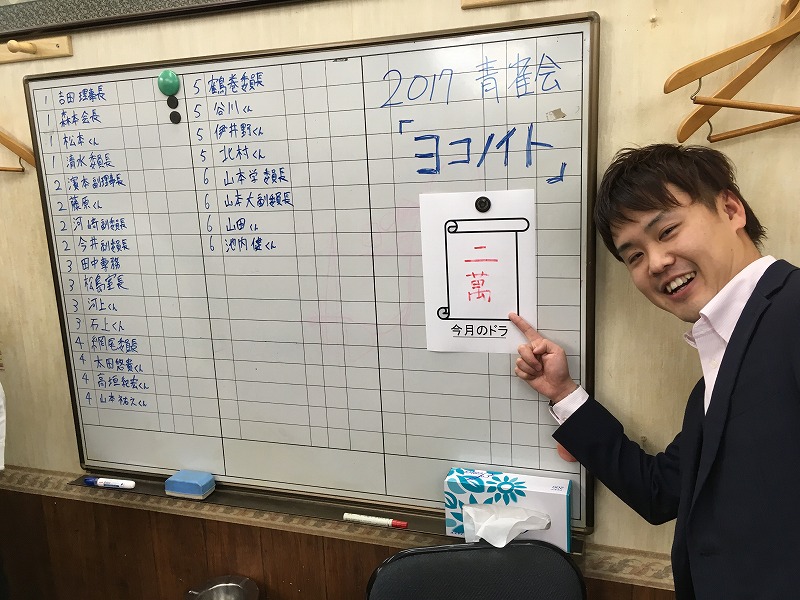 1 吉田理事長
1 森本会長
1 松本くん
1 清水委員長
2 濱本副理事長
2 藤原くん
2 河崎副委員長
2 今井副委員長
3 田中専務
3 松島室長
3 河上くん
3 石上くん
4 網尾委員長
4 太田悠貴くん
4 高垣紀宏くん
4 山本祐久くん
5 鶴巻委員長
5 谷川くん
5 伊井野くん
5 北村くん
6 山本学委員長
6 山本大副委員長
6 山田くん
6 池内健くん
2017 青雀会
「ヨコノイト」
二
萬
今月のドラ